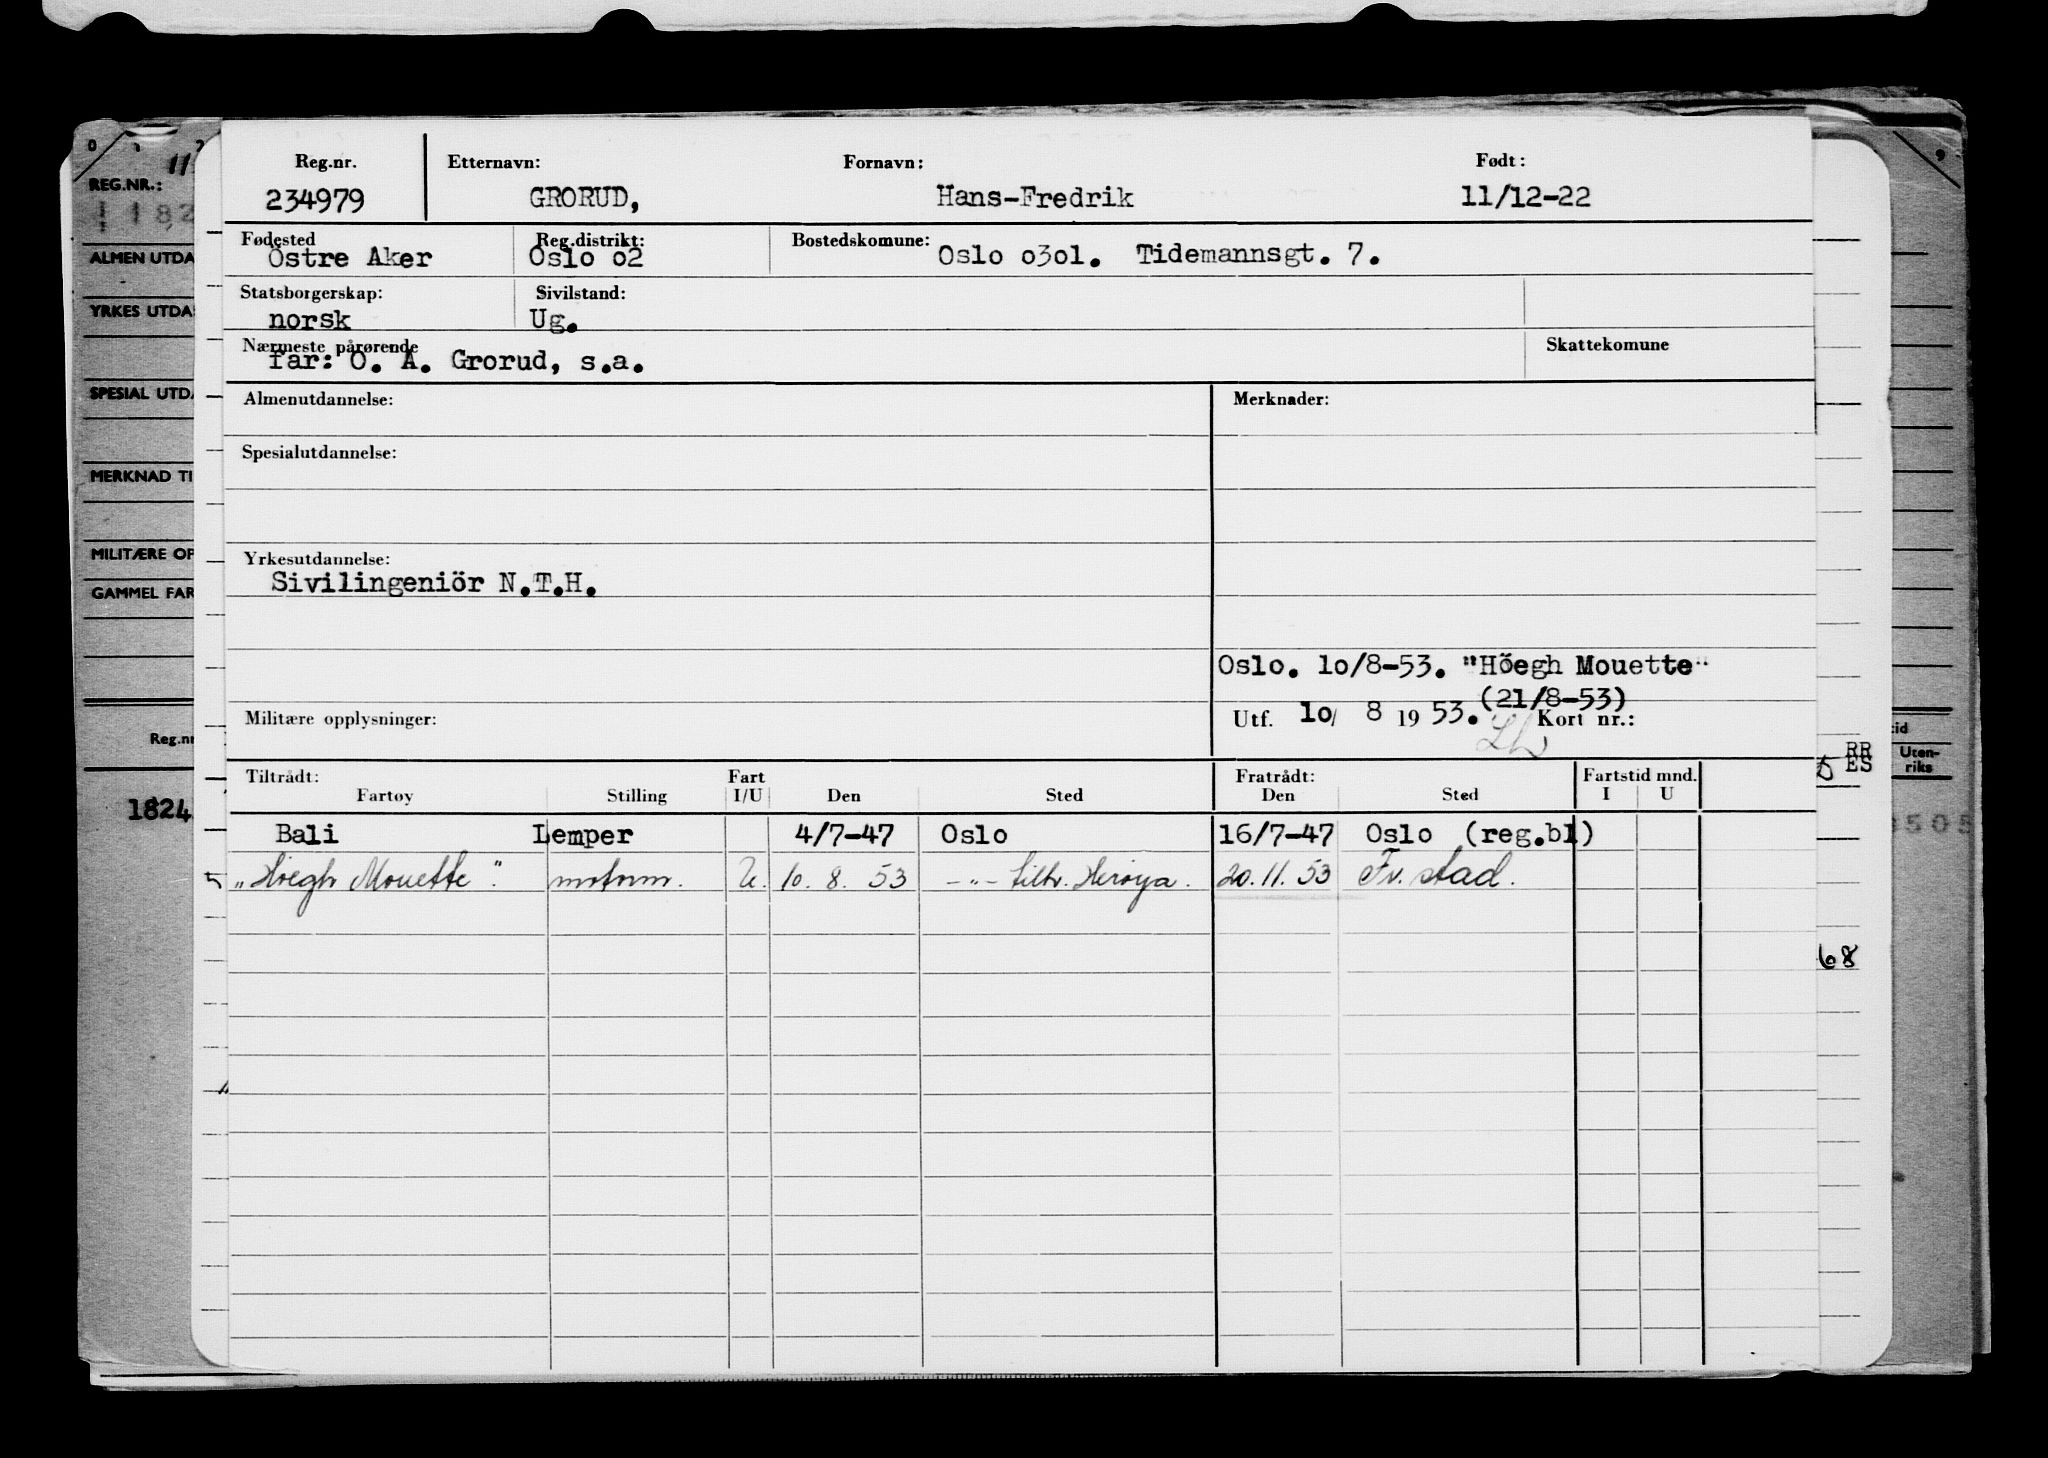 Reg.nr. Etternavn: Fornavn: Født:
234979 GRORUD, Hans-Fredrik 11/12-22
Fødested Reg.distrikt: Bostedskomune:
Östre Aker Oslo o2 Oslo o3ol. Tidemannsgt. 7.
Statsborgerskap: Sivilstand:
norsk Ug.
Nærmeste pårørende Skattekomune
far: O. A. Grorud, s.a.
Almenutdannelse: Merknader:
Spesialutdannelse:
Yrkesutdannelse:
Sivilingeniör N.T.H.
Oslo. lo/8-53. "Höegh Mouette"
(21/8-53)
Militære opplysninger: Utf. lo/ 8 1953. Kort nr.:
Tiltrådt: Fart Fratrådt: Fartstid mnd.
Fartøy Stilling I/U Den Sted Den Sted I U
Bali Lemper 4/7-47 Oslo 16/7-47 Oslo (reg.bl)
„Höegh Mouette". motorm. U. 10. 8. 53 -"- tilh. Herøya. 20.11.53 Fr.stad.
REG.NR.:
ALMEN UTDA
YRKES UTDA
SPESIAL UTDA
MERKNAD TI
MILITÆRE OP
GAMMEL FAR
Reg.nr
1824
RR
ES
tid
Uten-
riks
68
505